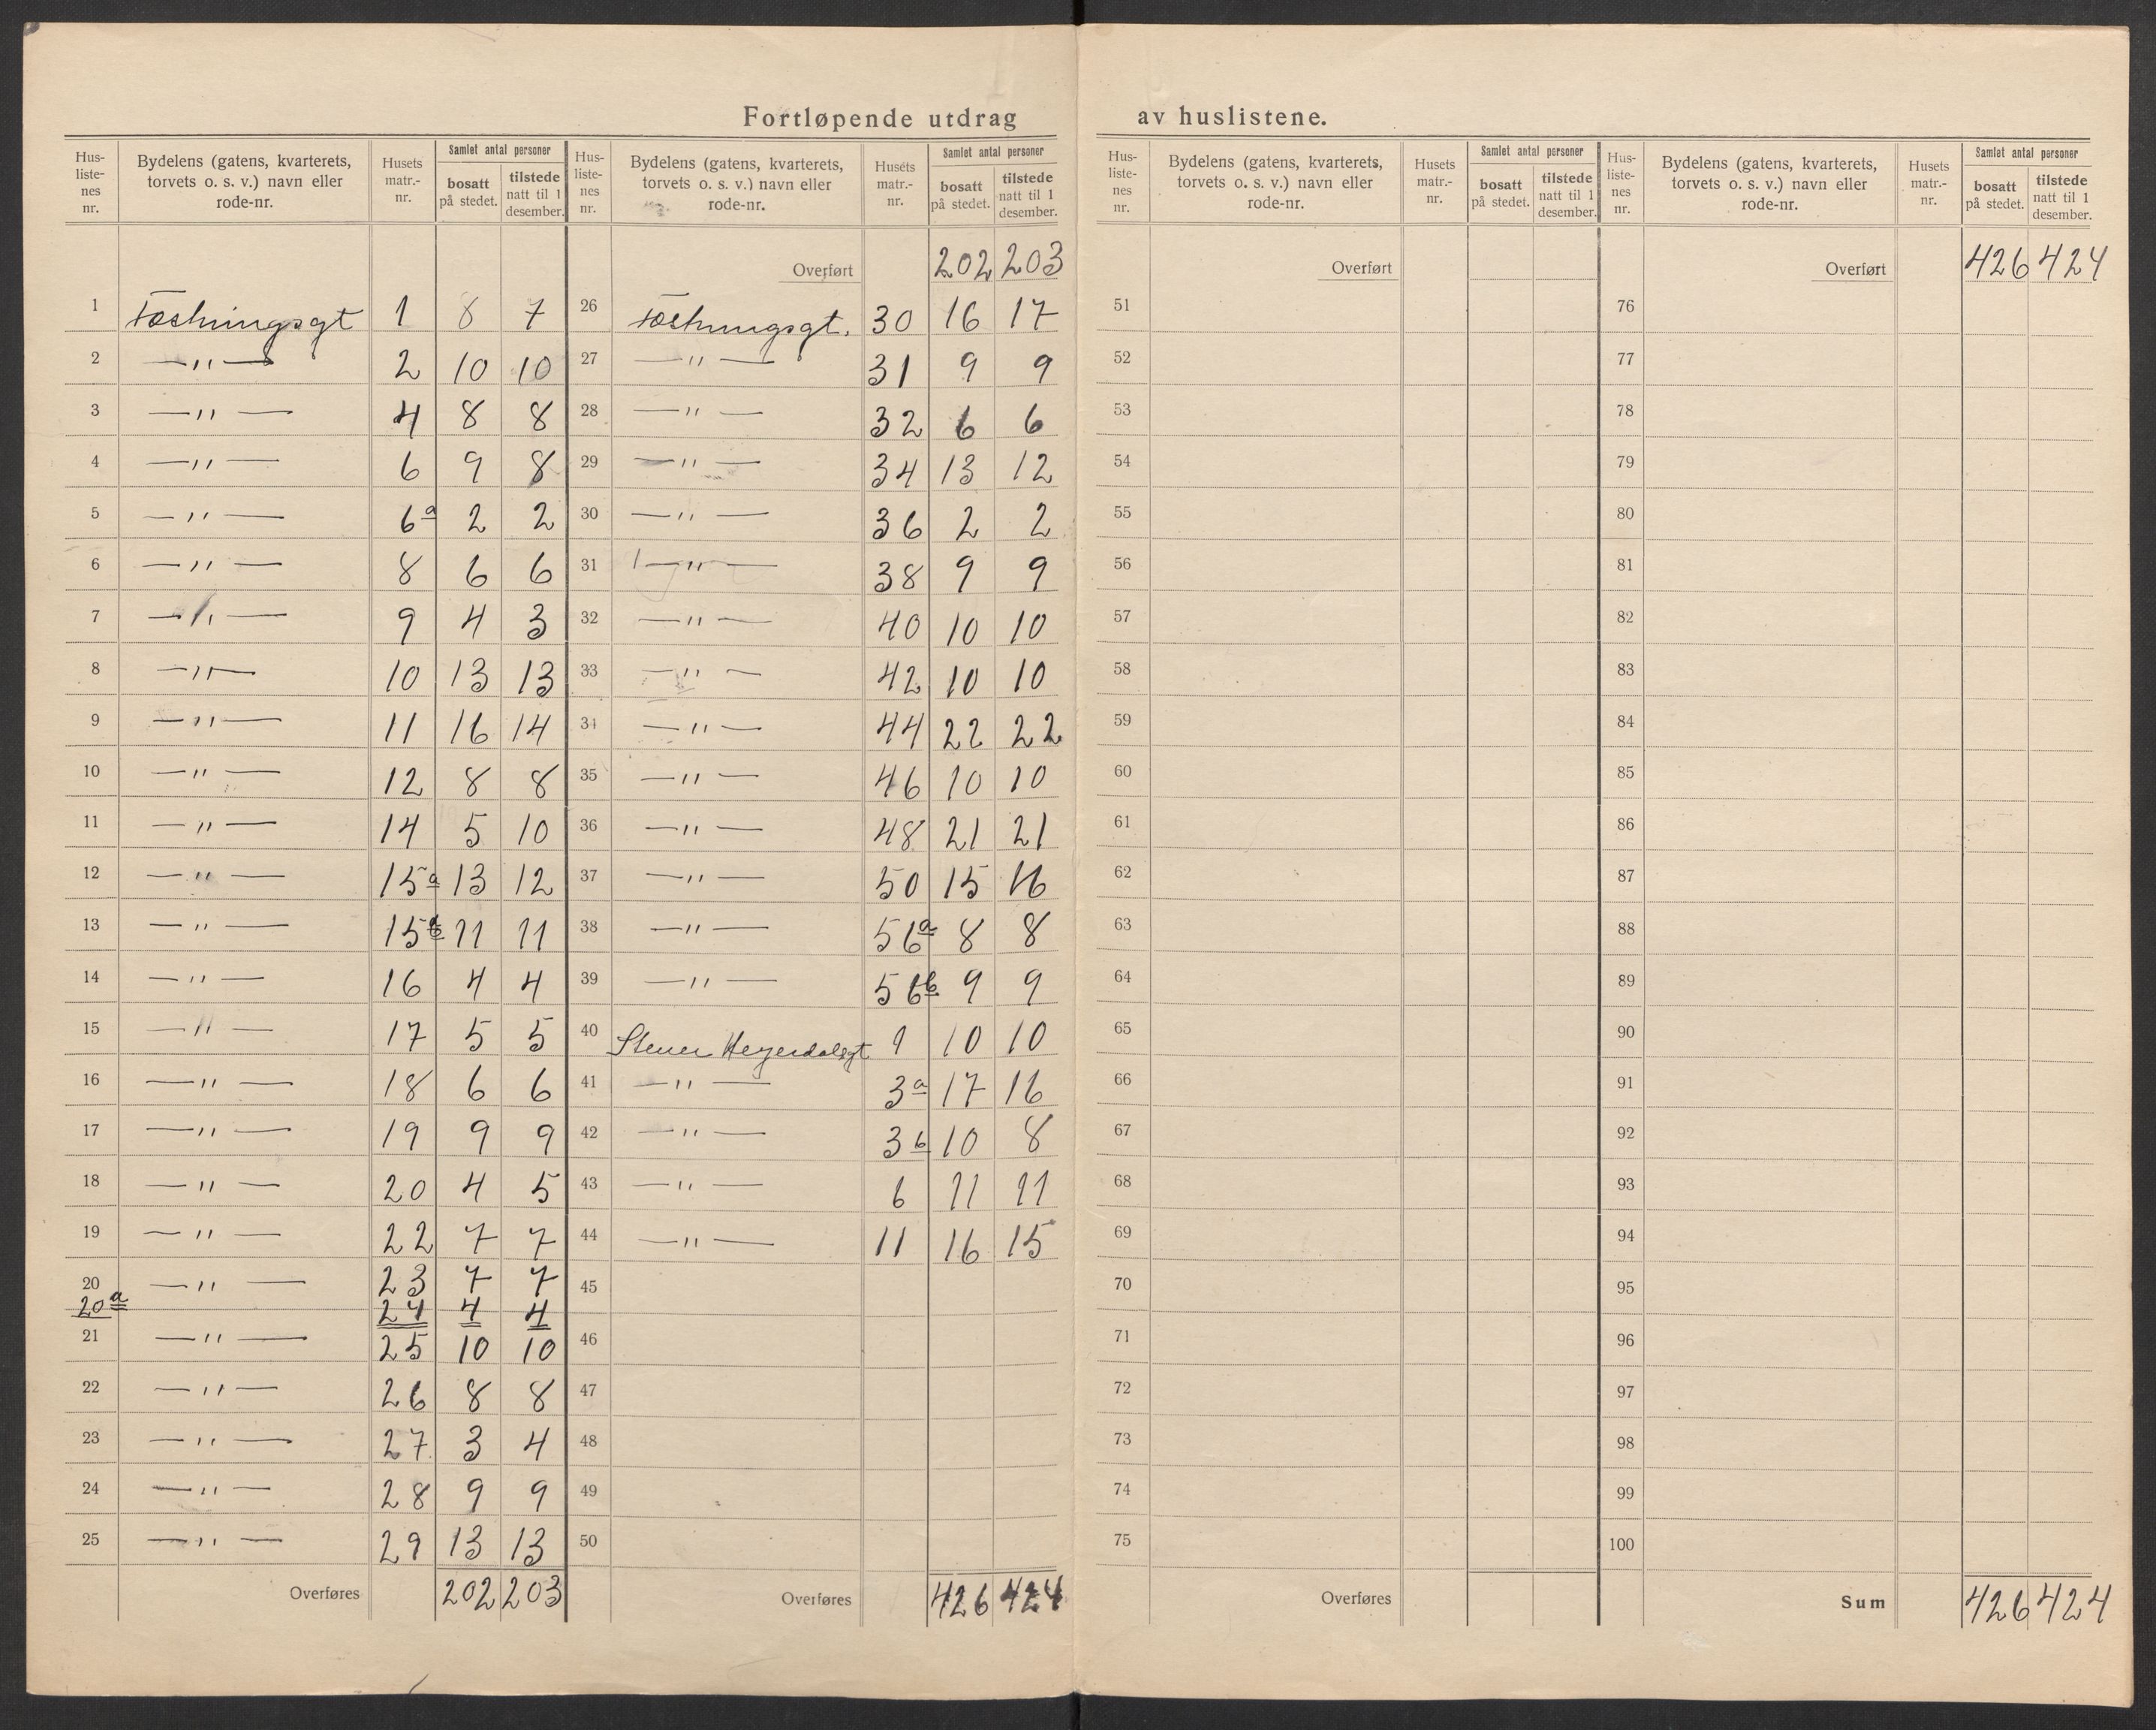 Fortløpende utdrag av huslistene.
Hus-listenes nr. | Bydelens (gatens, kvarterets, torvets o. s. v.) navn eller rode-nr. | Husets matr.-nr. | Samlet antal personer bosatt på stedet. | tilstede natt til 1 desember.
1 Fæstningsgt 1 8 7
2 —"— 2 10 10
3 —"— 4 8 8
4 —"— 6 9 8
5 —"— 6a 2 2
6 —"— 8 6 6
7 —"— 9 4 3
8 —"— 10 13 13
9 —"— 11 16 14
10 —"— 12 8 8
11 —"— 14 5 10
12 —"— 15a 13 12
13 —"— 15b 11 11
14 —"— 16 4 4
15 —"— 17 5 5
16 —"— 18 6 6
17 —"— 19 9 9
18 —"— 20 4 5
19 —"— 22 7 7
20 —"— 23 7 7
20a 24 4 4
21 —"— 25 10 10
22 —"— 26 8 8
23 —"— 27 3 4
24 —"— 28 9 9
25 —"— 29 13 13
Overføres 202 203
Hus-listenes nr. | Bydelens (gatens, kvarterets, torvets o. s. v.) navn eller rode-nr. | Husets matr.-nr. | Samlet antal personer bosatt på stedet. | tilstede natt til 1 desember.
Overført 202 203
26 Fæstningsgt. 30 16 17
27 —"— 31 9 9
28 —"— 32 6 6
29 —"— 34 13 12
30 —"— 36 2 2
31 —"— 38 9 9
32 —"— 40 10 10
33 —"— 42 10 10
34 —"— 44 22 22
35 —"— 46 10 10
36 —"— 48 21 21
37 —"— 50 15 16
38 —"— 56a 8 8
39 —"— 56b 9 9
40 Heyerdalsgt 1 10 10
41 —"— 3a 17 16
42 —"— 3b 10 8
43 —"— 6 11 11
44 —"— 11 16 15
45
46
47
48
49
50
Overføres 426 424
Hus-listenes nr. | Bydelens (gatens, kvarterets, torvets o. s. v.) navn eller rode-nr. | Husets matr.-nr. | Samlet antal personer bosatt på stedet. | tilstede natt til 1 desember.
Overført
51
52
53
54
55
56
57
58
59
60
61
62
63
64
65
66
67
68
69
70
71
72
73
74
75
Overføres
Hus-listenes nr. | Bydelens (gatens, kvarterets, torvets o. s. v.) navn eller rode-nr. | Husets matr.-nr. | Samlet antal personer bosatt på stedet. | tilstede natt til 1 desember.
Overført 426 424
76
77
78
79
80
81
82
83
84
85
86
87
88
89
90
91
92
93
94
95
96
97
98
99
100
Sum 426 424